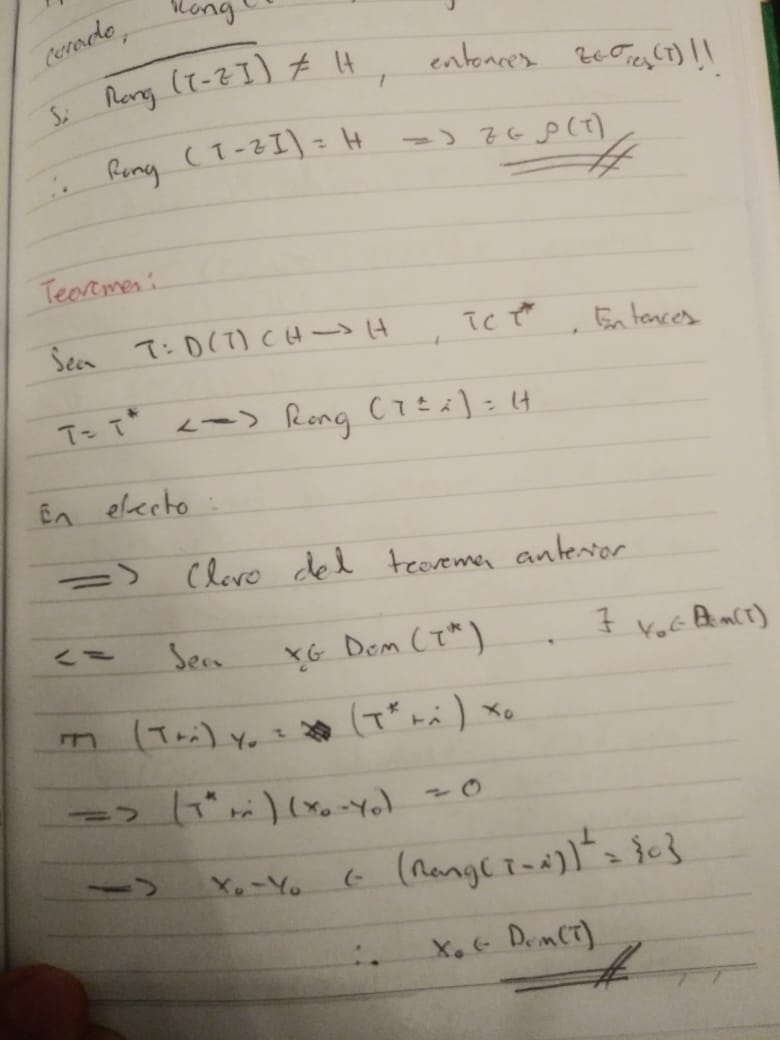 cerrado, Rang (
Si Rang (T-zI) ≠ H, entonces z∈σres(T)!!
∴ Rang (T-zI) = H => z ∈ ρ(T)
Teorema:
Sea T: D(T) ⊂ H -> H, T⊂T*. Entonces
T = T* <=> Rang (T ± i) = H
En efecto:
=> Claro del teorema anterior
<= Sea x₀∈ Dom(T*). ∃ y₀ ∈ Dom(T)
(T+i) y₀ = (T*+i) x₀
=> (T*+i)(x₀-y₀) = 0
=> x₀-y₀ ∈ (Rang(T-i))^⊥ = {0}
∴ x₀ ∈ Dom(T)